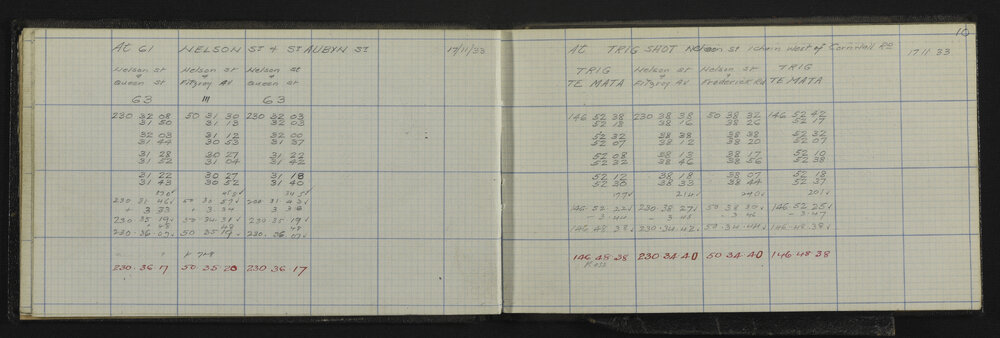 At 61 NELSON ST & ST AUBYN ST 17/11/33
Nelson St & Queen St
Nelson St & Fitzroy AV
Nelson St & Queen St
63 111 63
230 32 08 50 31 30 230 32 03
31 50 31 13 32 03
32 03 31 12 32 00
31 44 30 53 31 37
31 28 30 27 31 22
31 52 31 04 31 42
31 22 30 27 31 18
31 43 30 52 31 40
230 31 46
3 33
230 35 19 230 35 19
230 36 07 50 35 19 230 36 07
230 · 36 · 17 50 · 35 · 20 230 · 36 · 17
10
At TRIG SHOT Nelson St 1 chain West of Cornwall RD 17 11 33
TRIG TE MATA
Nelson St & Fitzroy AV
Nelson St & Frederick Rd
TRIG TE MATA
146 52 38 230 38 38 50 38 32 146 52 42
52 18 38 16 38 26 52 17
52 32 38 38 38 38 52 32
52 07 38 12 38 20 52 07
52 08 38 13 38 17 52 10
52 32 38 46 38 56 52 38
52 12 38 18 38 07 52 18
52 30 38 33 38 44 52 37
146 · 52 · 22 230 · 38 · 27 50 38 30 146 · 52 25
- 3 · 44 - 3 45 - 3 46 - 3 · 47
146 48 38 230 · 34 · 42 50 · 34 · 44 146 · 48 · 38
146 · 48 · 38 230 · 34 · 40 50 · 34 · 40 146 · 48 · 38